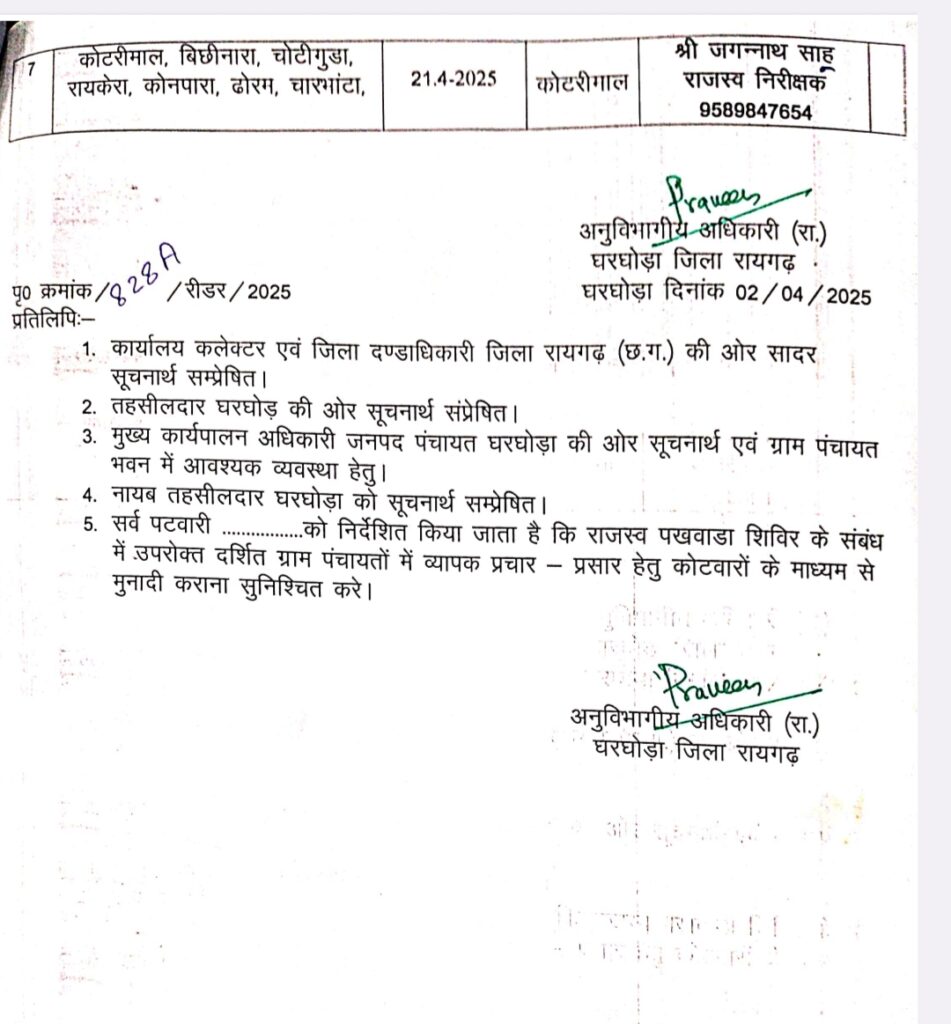 7
कोटरीमाल, बिछीनारा, चोटीगुडा,
रायकेरा, कोनपारा, ढोरम, चारभांटा,
21.4-2025
कोटरीगाल
श्री जगन्नाथ साहू
राजस्व निरीक्षक
9589847654
Praveen
अनुविभागीय अधिकारी (रा.)
घरघोड़ा जिला रायगढ़
पृ0 क्रमांक/828A/रीडर/2025
घरघोड़ा दिनांक 02/04/2025
प्रतिलिपिः–
1. कार्यालय कलेक्टर एवं जिला दण्डाधिकारी जिला रायगढ़ (छ.ग.) की ओर सादर
सूचनार्थ सम्प्रेषित।
2. तहसीलदार घरघोड़ की ओर सूचनार्थ संप्रेषित।
3. मुख्य कार्यपालन अधिकारी जनपद पंचायत घरघोड़ा की ओर सूचनार्थ एवं ग्राम पंचायत
भवन में आवश्यक व्यवस्था हेतु।
4. नायब तहसीलदार घरघोड़ा को सूचनार्थ सम्प्रेषित।
5. सर्व पटवारी .................को निर्देशित किया जाता है कि राजस्व पखवाडा शिविर के संबंध
में उपरोक्त दर्शित ग्राम पंचायतों में व्यापक प्रचार – प्रसार हेतु कोटवारों के माध्यम से
मुनादी कराना सुनिश्चित करे।
Praveen
अनुविभागीय अधिकारी (रा.)
घरघोड़ा जिला रायगढ़